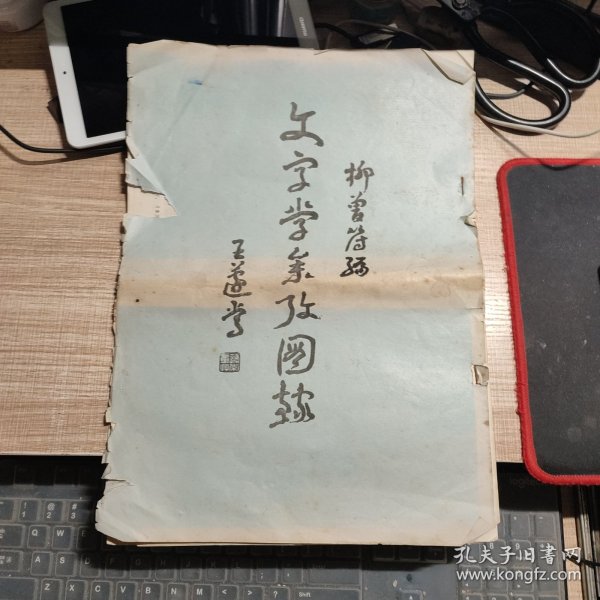 柳曾符编
文字学参考图录
王蘧常
孔夫子旧书网
www.kongfz.com